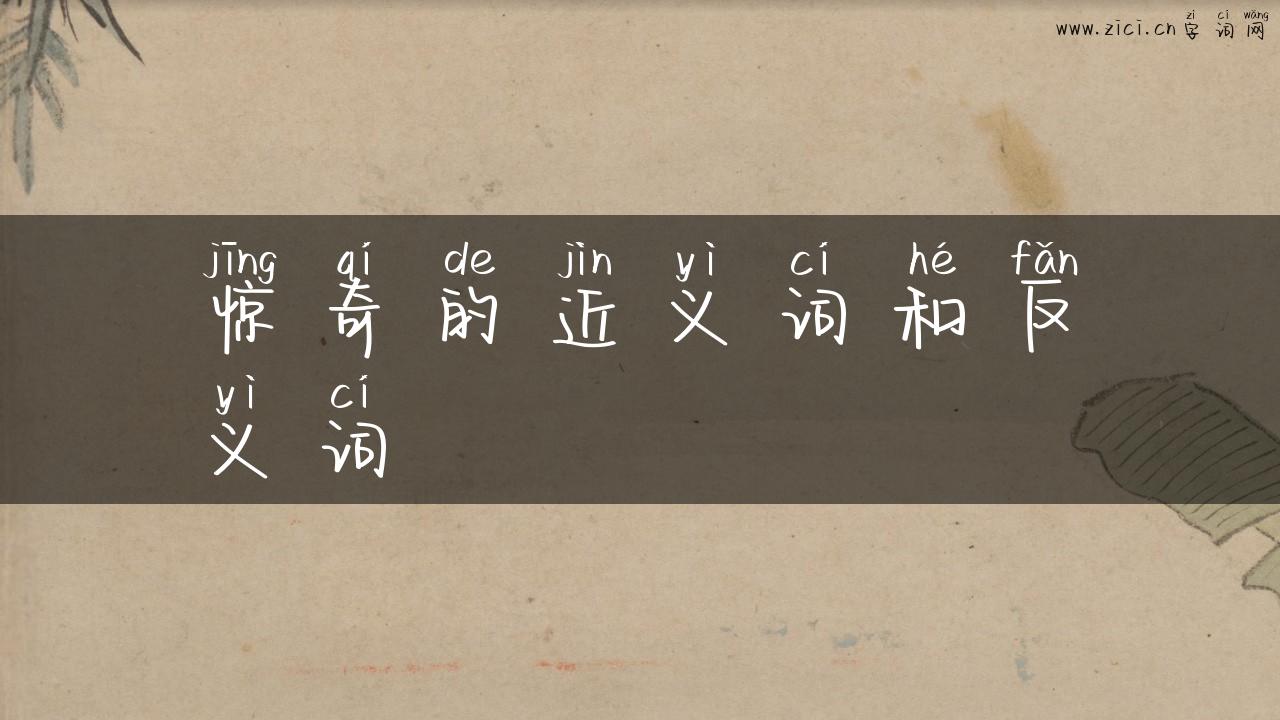 zì cí wǎng
www.zici.cn 字 词 网
jīng qí de jìn yì cí hé fǎn
惊 奇 的 近 义 词 和 反
yì cí
义 词